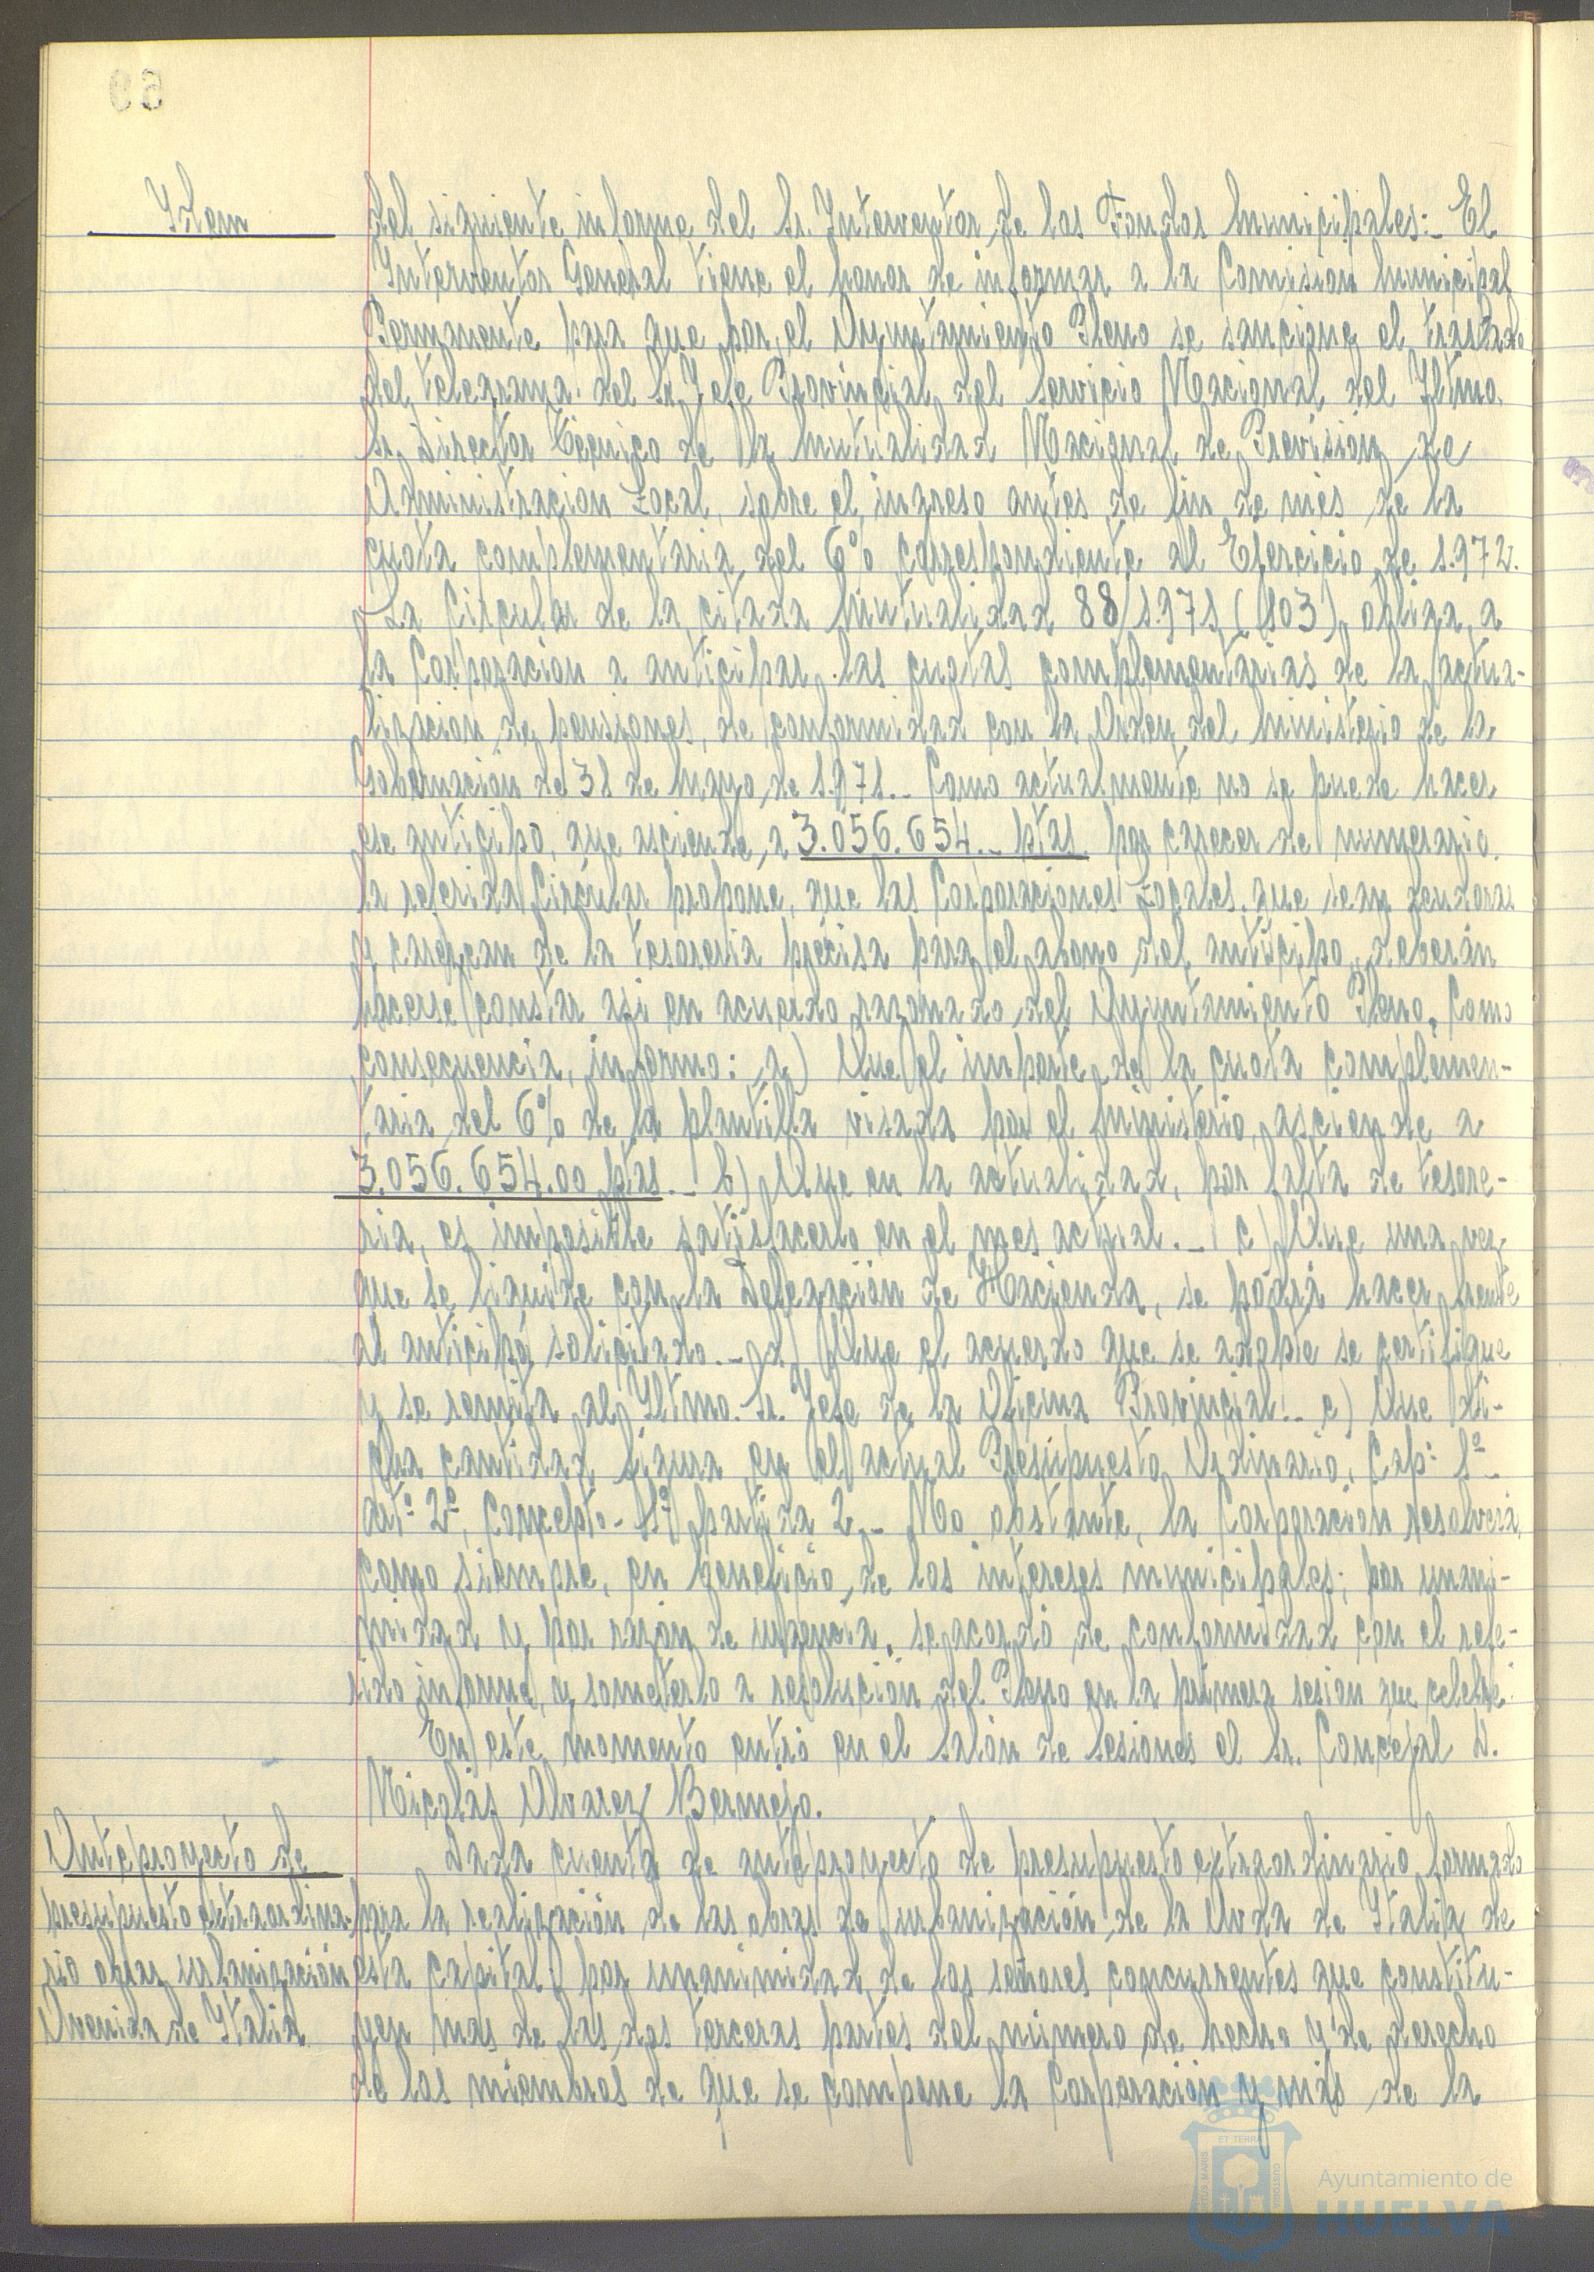 69
Idem
del siguiente informe del Sr. Interventor de los Fondos Municipales:- El
Interventor General tiene el honor de informar a la Comisión Municipal
Permanente para que por el Ayuntamiento Pleno se sancione el traslado
del telegrama del Sr. Jefe Provincial del Servicio Nacional del Iltmo.
Sr. Director Técnico de la Mutualidad Nacional de Previsión de
Administración Local, sobre el ingreso antes de fin de mes de la
cuota complementaria del 6% correspondiente al Ejercicio de 1.972.
La Circular de la citada Mutualidad 88/1.971 (103), obliga a
la Corporación a anticipar las cuotas complementarias de la actua-
lización de pensiones, de conformidad con la Orden del Ministerio de la
Gobernación de 31 de Mayo de 1.971.- Como actualmente no se puede hacer
ese anticipo, que asciende a 3.056.654.- ptas. por carecer de numerario.
la referida Circular propone, que las Corporaciones Locales que sean deudoras
y carezcan de la tesorería precisa para el abono del anticipo, deberán
hacerse constar así en acuerdo razonado del Ayuntamiento Pleno. Como
consecuencia, informo: a) Que el importe de la cuota complemen-
taria del 6% de la plantilla visada por el Ministerio, asciende a
3.056.654.00 ptas.- b) Que en la actualidad, por falta de tesore-
ria, es imposible satisfacerlo en el mes actual.- c) Que una vez
que se liquide con la Delegación de Hacienda, se podrá hacer frente
al anticipo solicitado.- d) Que el acuerdo que se adopte se certifique
y se remita al Iltmo. Sr. Jefe de la Oficina Provincial.- e) Que di-
cha cantidad figura en el actual Presupuesto Ordinario, Cap: 1º
artº 2º, concepto - 1º, partida 2.- No obstante, la Corporación resolverá,
como siempre, en beneficio de los intereses municipales; por unani-
midad y por razón de urgencia, se acordó de conformidad con el refe-
rido informe, y someterlo a resolución del Pleno en la primera sesión que celebre.
En este momento entró en el Salón de Sesiones el Sr. Concejal D.
Nicolás Alvarez Bermejo.
Anteproyecto de
presupuesto extraordina-
rio obras urbanización
Avenida de Italia
Dada cuenta de anteproyecto de presupuesto extraordinario formado
para la realización de las obras de urbanización de la Avda de Italia de
esta capital; por unanimidad de los señores concurrentes que constitu-
yen mas de las dos terceras partes del número de hecho y de derecho
de los miembros de que se compone la Corporación y más de la
Ayuntamiento de
HUELVA